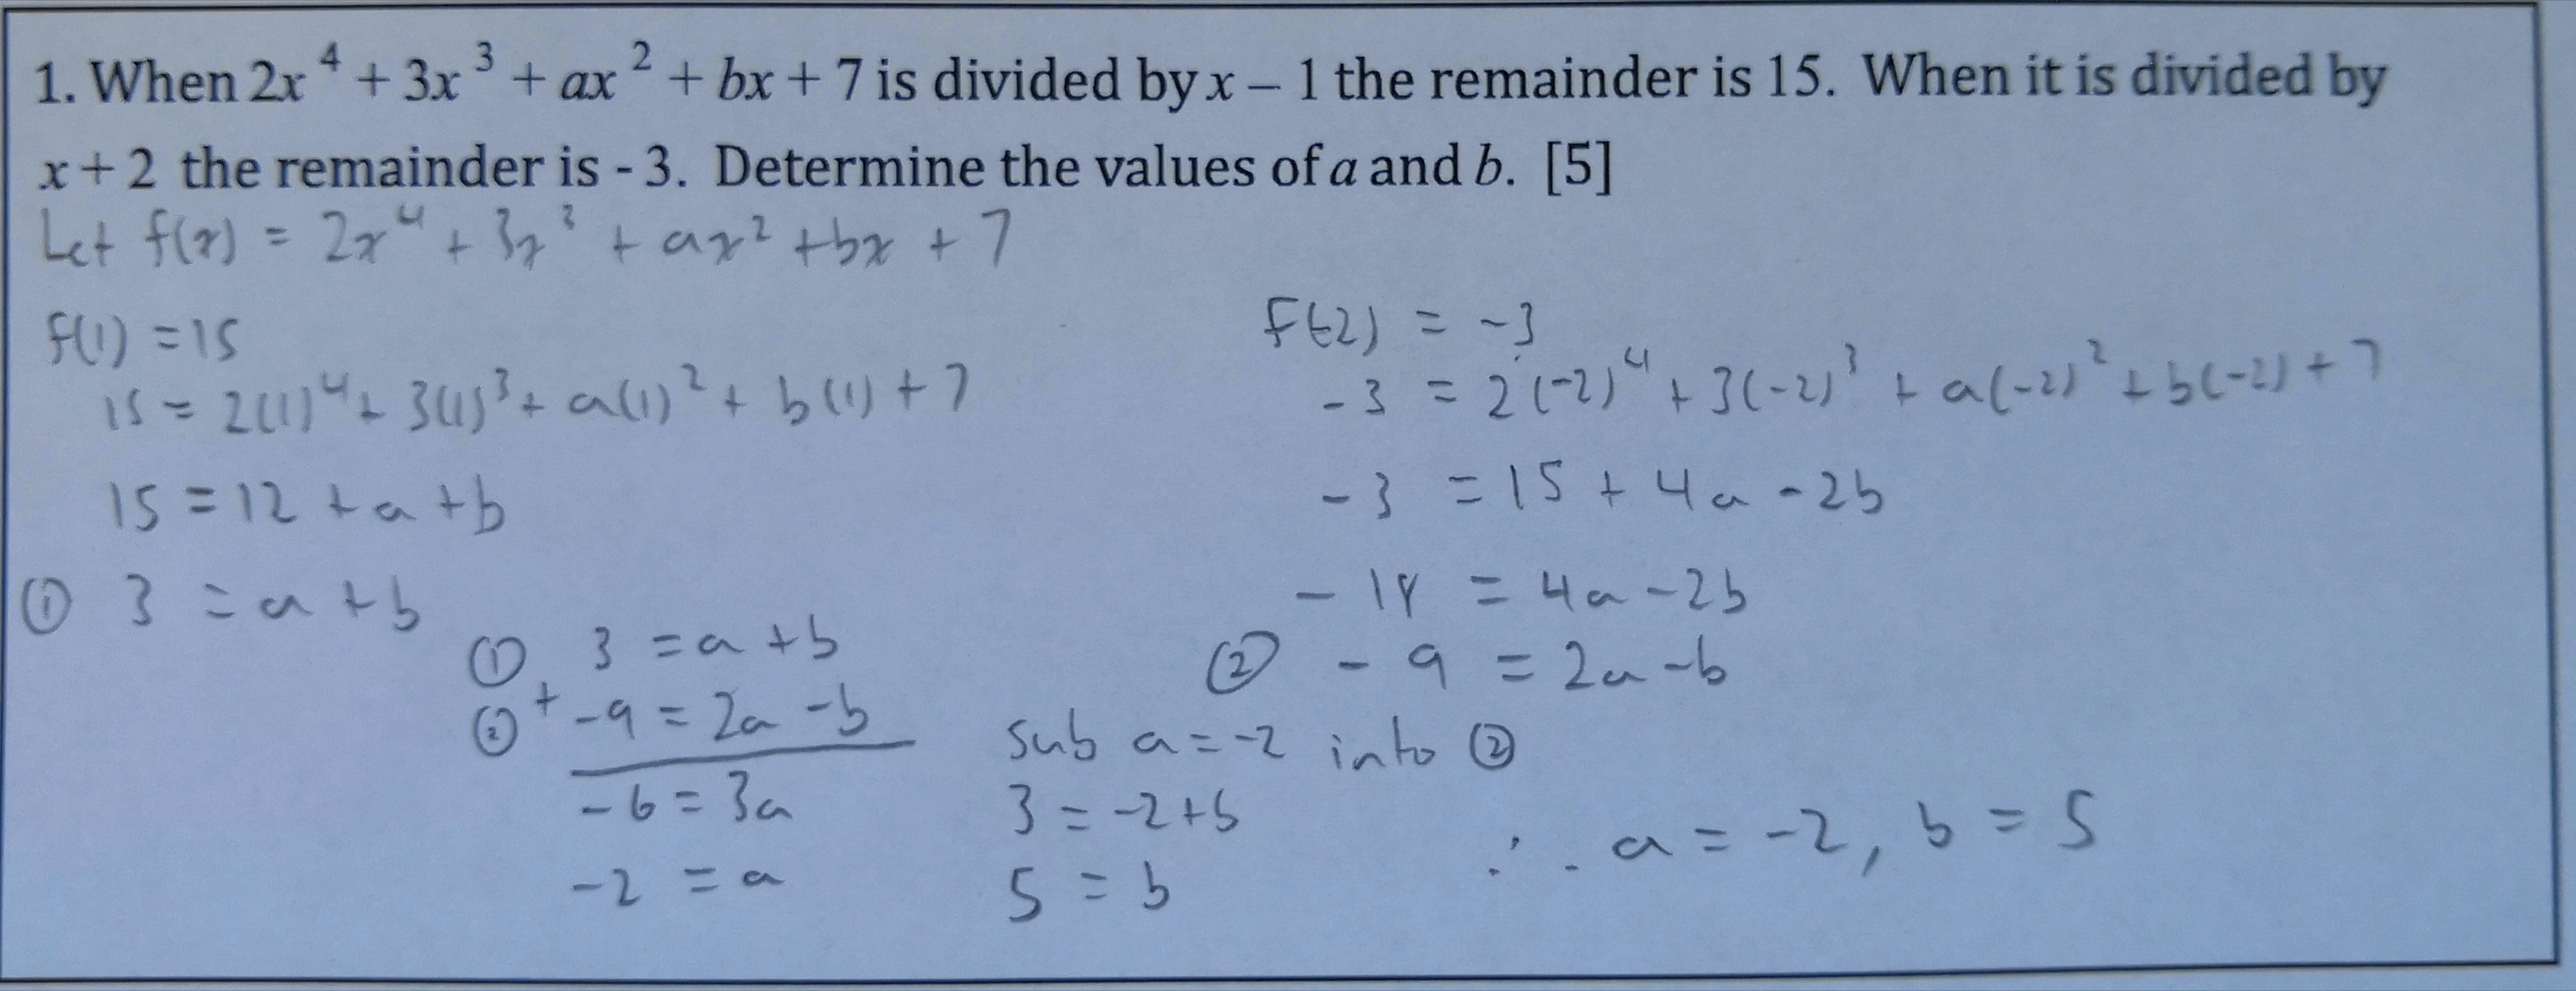 1. When 2x⁴ + 3x³ + ax² + bx + 7 is divided by x – 1 the remainder is 15. When it is divided by
x + 2 the remainder is - 3. Determine the values of a and b. [5]
Let f(x) = 2x⁴ + 3x³ + ax² + bx + 7
f(1) = 15
15 = 2(1)⁴ + 3(1)³ + a(1)² + b(1) + 7
15 = 12 + a + b
① 3 = a + b
F(-2) = -3
-3 = 2(-2)⁴ + 3(-2)³ + a(-2)² + b(-2) + 7
-3 = 15 + 4a - 2b
-18 = 4a - 2b
② -9 = 2a - b
① 3 = a + b
② + -9 = 2a - b
-6 = 3a
-2 = a
sub a = -2 into ②
3 = -2 + b
5 = b
∴ a = -2, b = 5